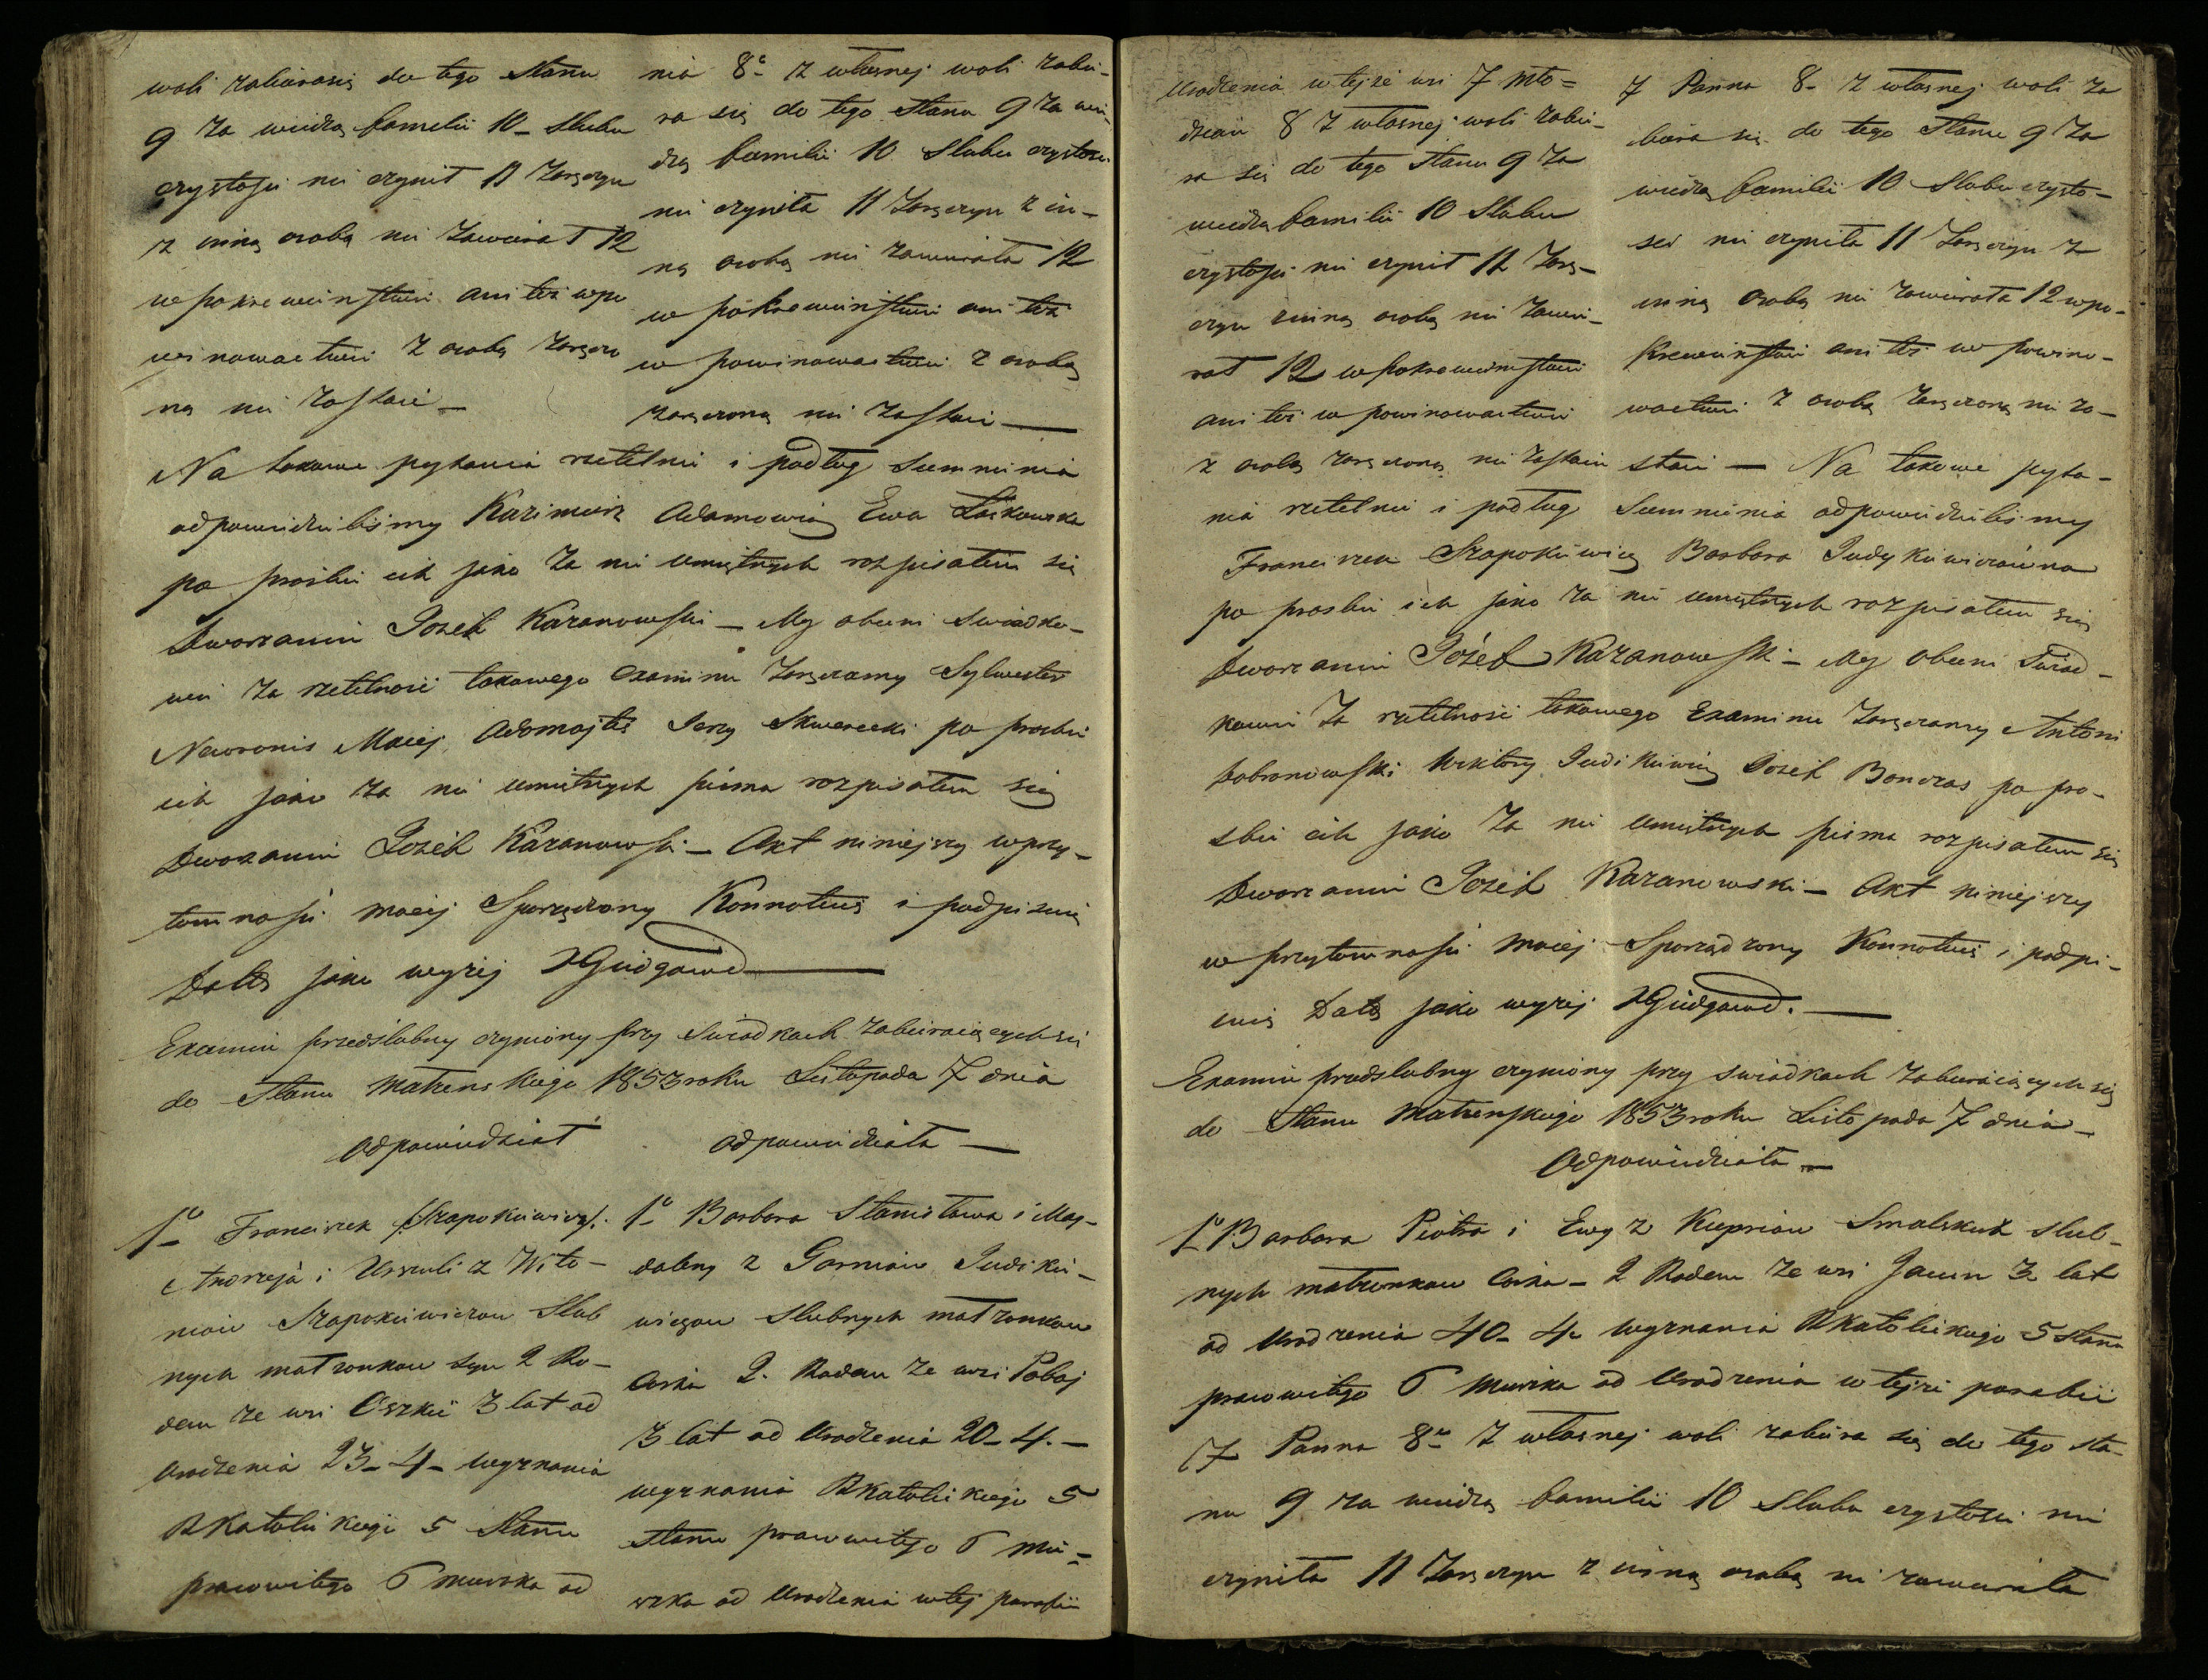 woli zabierasię do tego Stanu
9 Za wiedzą familii 10 – Slubu
czystosci nie czynił 11 Zaręczyn
z inną osobą nie Zawierał 12
w pokrewienstwie ani też wpo
winowactwie z osobą Zaręczo
ną nie Zostaie –
nia 8e – Z własnej woli zabie-
ra się do tego Stanu 9 Za wie-
dzą familii 10 Slubu czystosci
nie czyniła 11 Zaręczyn z in-
ną osobą nie zawierała 12
w pokrewienstwie ani też
w powinowactwie z osobą
zaręczoną nie Zostaie –
Na takowe pytania rzetelnie i podług Sumnienia
odpowiedzielismy Kazimierz Adamowicz Ewa Laskowska
po prosbie ich jako Za nie umiętnych rozpisałem się
Dworzanin Jozef Kazanowski – My obecni Swiadko-
wie Za rzetelnosć takowego Examinu Zaręczamy Sylwester
Neworonis Maciej Adomajtis Jerzy Skwerecki po prosbie
ich jako Za nie umiętnych pisma rozpisałem się
Dworzanin Jozef Kazanowski – Akt niniejszy wprzy-
tomnosci moiej Sporządzony Konnotuię i podpisuię
Datą jako wyżej XGiedgowd
Examin przedslubny czyniony przy Swiadkach zabieraiącychsię
do Stanu Małzenskiego 1853 roku Listopada 7 dnia
Odpowiedział
Odpowiedziała –
1o Franciszek Szapokiewicz
Andrzeja i Urszuli z Wito-
niow Szapokiewiczow Slub
nych małzonkow syn 2 Ro-
dem ze wsi Oszkie 3 lat od
Urodzenia 23 – 4 – wyznania
RKatolickiego 5 Stanu
prawowitego 6 mieszka od
1o Barbara Stanisława i Mag-
daleny z Garniow Judikie-
wiczow Slubnych małzonkow
Corka 2. Rodem Ze wsi Poboj
3 lat od Urodzenia 20 – 4. –
wyznania RKatolickiego 5
Stanu prawowitego 6 mie-
szka od Urodzenia wtej parafii
Urodzenia w tejże wsi 7 mło-
dzian 8 Z własnej woli zabie-
ra się do tego Stanu 9 Za
wiedzą familii 10 Slubu
czystosci nie czynił 11 Zarę-
czyn z inną osobą nie Zawie-
rał 12 w pokrewienstwie
ani też w powinowactwie
z osobą zaręczoną nie Zostaie
7 Panna 8 – Z własnej woli Za
biera się do tego Stanu 9 Za
wiedzą familii 10 Slubu czysto-
sci nie czyniła 11 Zaręczyn z
inną osobą nie zawierała 12 wpo-
krewienstwie ani też w powino-
wactwie z osobą Zaręczoną nie zo-
staie – Na takowe pyta-
nia rzetelnie i podług Sumnienia odpowiedzielismy
Franciszek Szapokiewicz Barbara Judykiewiczowna
po prosbie ich jako Za nie umiętnych rozpisałem się
Dworzanin Józef Kazanowski – My obecni Swiad-
kowie Za rzetelnosć takowego Examinu Zaręczamy Antoni
Dobronowski Wiktory Judikiewicz Jozef Bonczas po pro-
sbie ich jako Za nie umiętnych pisma rozpisałem się
Dworzanin Jozef Kazanowski – Akt niniejszy
w przytomnosci moiej Sporządzony Konnotuię i podpi-
suię Datą jako wyżej XGiedgowd. –
Examin przedslubny czyniony przy swiadkach Zabieraiącychsię
do Stanu Małzenskiego 1853 roku Listopada 7 dnia –
Odpowiedziała –
1o Barbara Piotra i Ewy z Kieprow Smalskich slub-
nych małzonkow Corka – 2 Rodem Ze wsi Jawn 3 lat
od Urodzenia 40 – 4. wyznania RKatolickiego 5 Stanu
prawowitego 6 mieszka od Urodzenia w tejże parafii
7 Panna 8e – Z własnej woli zabiera się do tego sta-
nu 9 za wiedzą familii 10 Slubu czystosci nie
czyniła 11 Zaręczyn z inną osobą nie zawierała